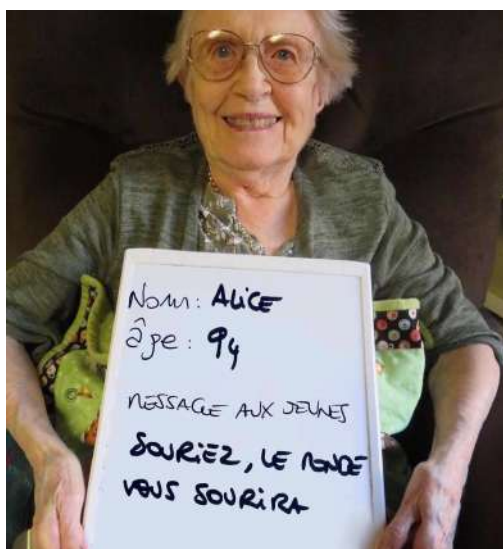 Nom: ALICE
âge: 94
MESSAGE AUX JEUNES
SOURIEZ, LE MONDE
VOUS SOURIRA